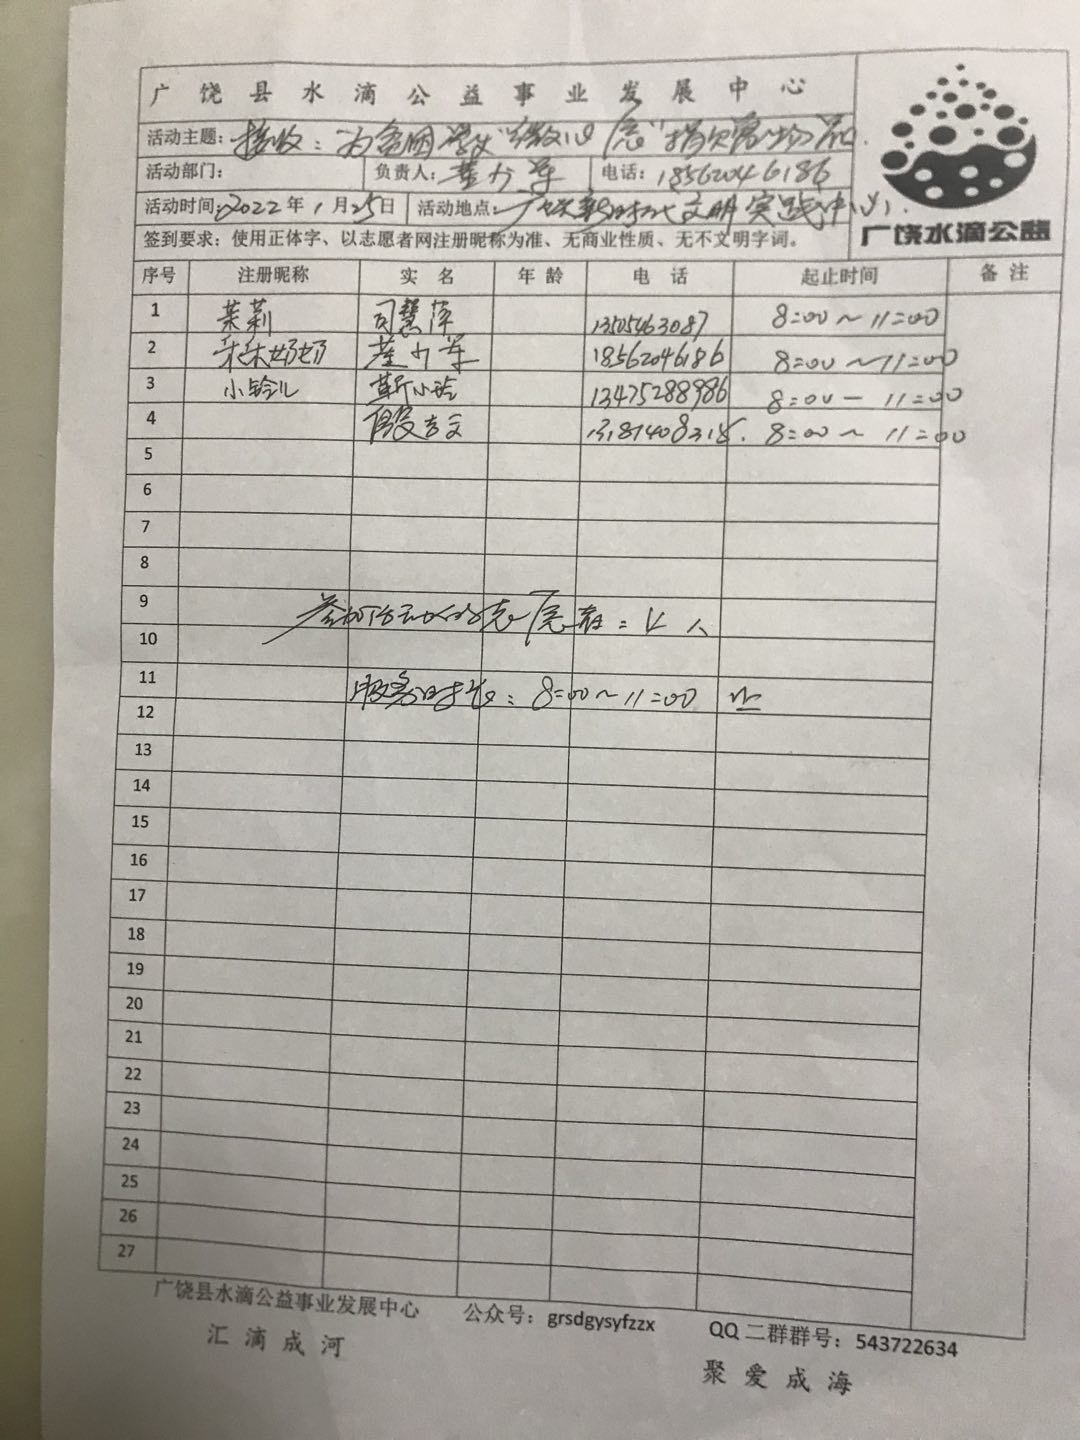 广饶县水滴公益事业发展中心
活动主题：接收：为贫困学子“微心愿”捐欠需物品
活动部门： 负责人： 电话：18562046186
活动时间：2022年1月25日 活动地点：广饶新时代文明实践中心
广饶水滴公益
签到要求：使用正体字、以志愿者网注册昵称为准、无商业性质、无不文明字词。
序号 注册昵称 实名 年龄 电话 起止时间 备注
1 茉莉 司慧萍 13505463087 8:00～11:00
2 禾禾奶奶 18562046186 8:00～11:00
3 小铃儿 靳小玲 13475288986 8:00－11:00
4 8:00～11:00
5
6
7
8
9
参加活动的志愿者：4人
10
11
服务时长：8:00～11:00
12
13
14
15
16
17
18
19
20
21
22
23
24
25
26
27
广饶县水滴公益事业发展中心 公众号：grsdgysyfzzx QQ二群群号：543722634
汇滴成河 聚爱成海